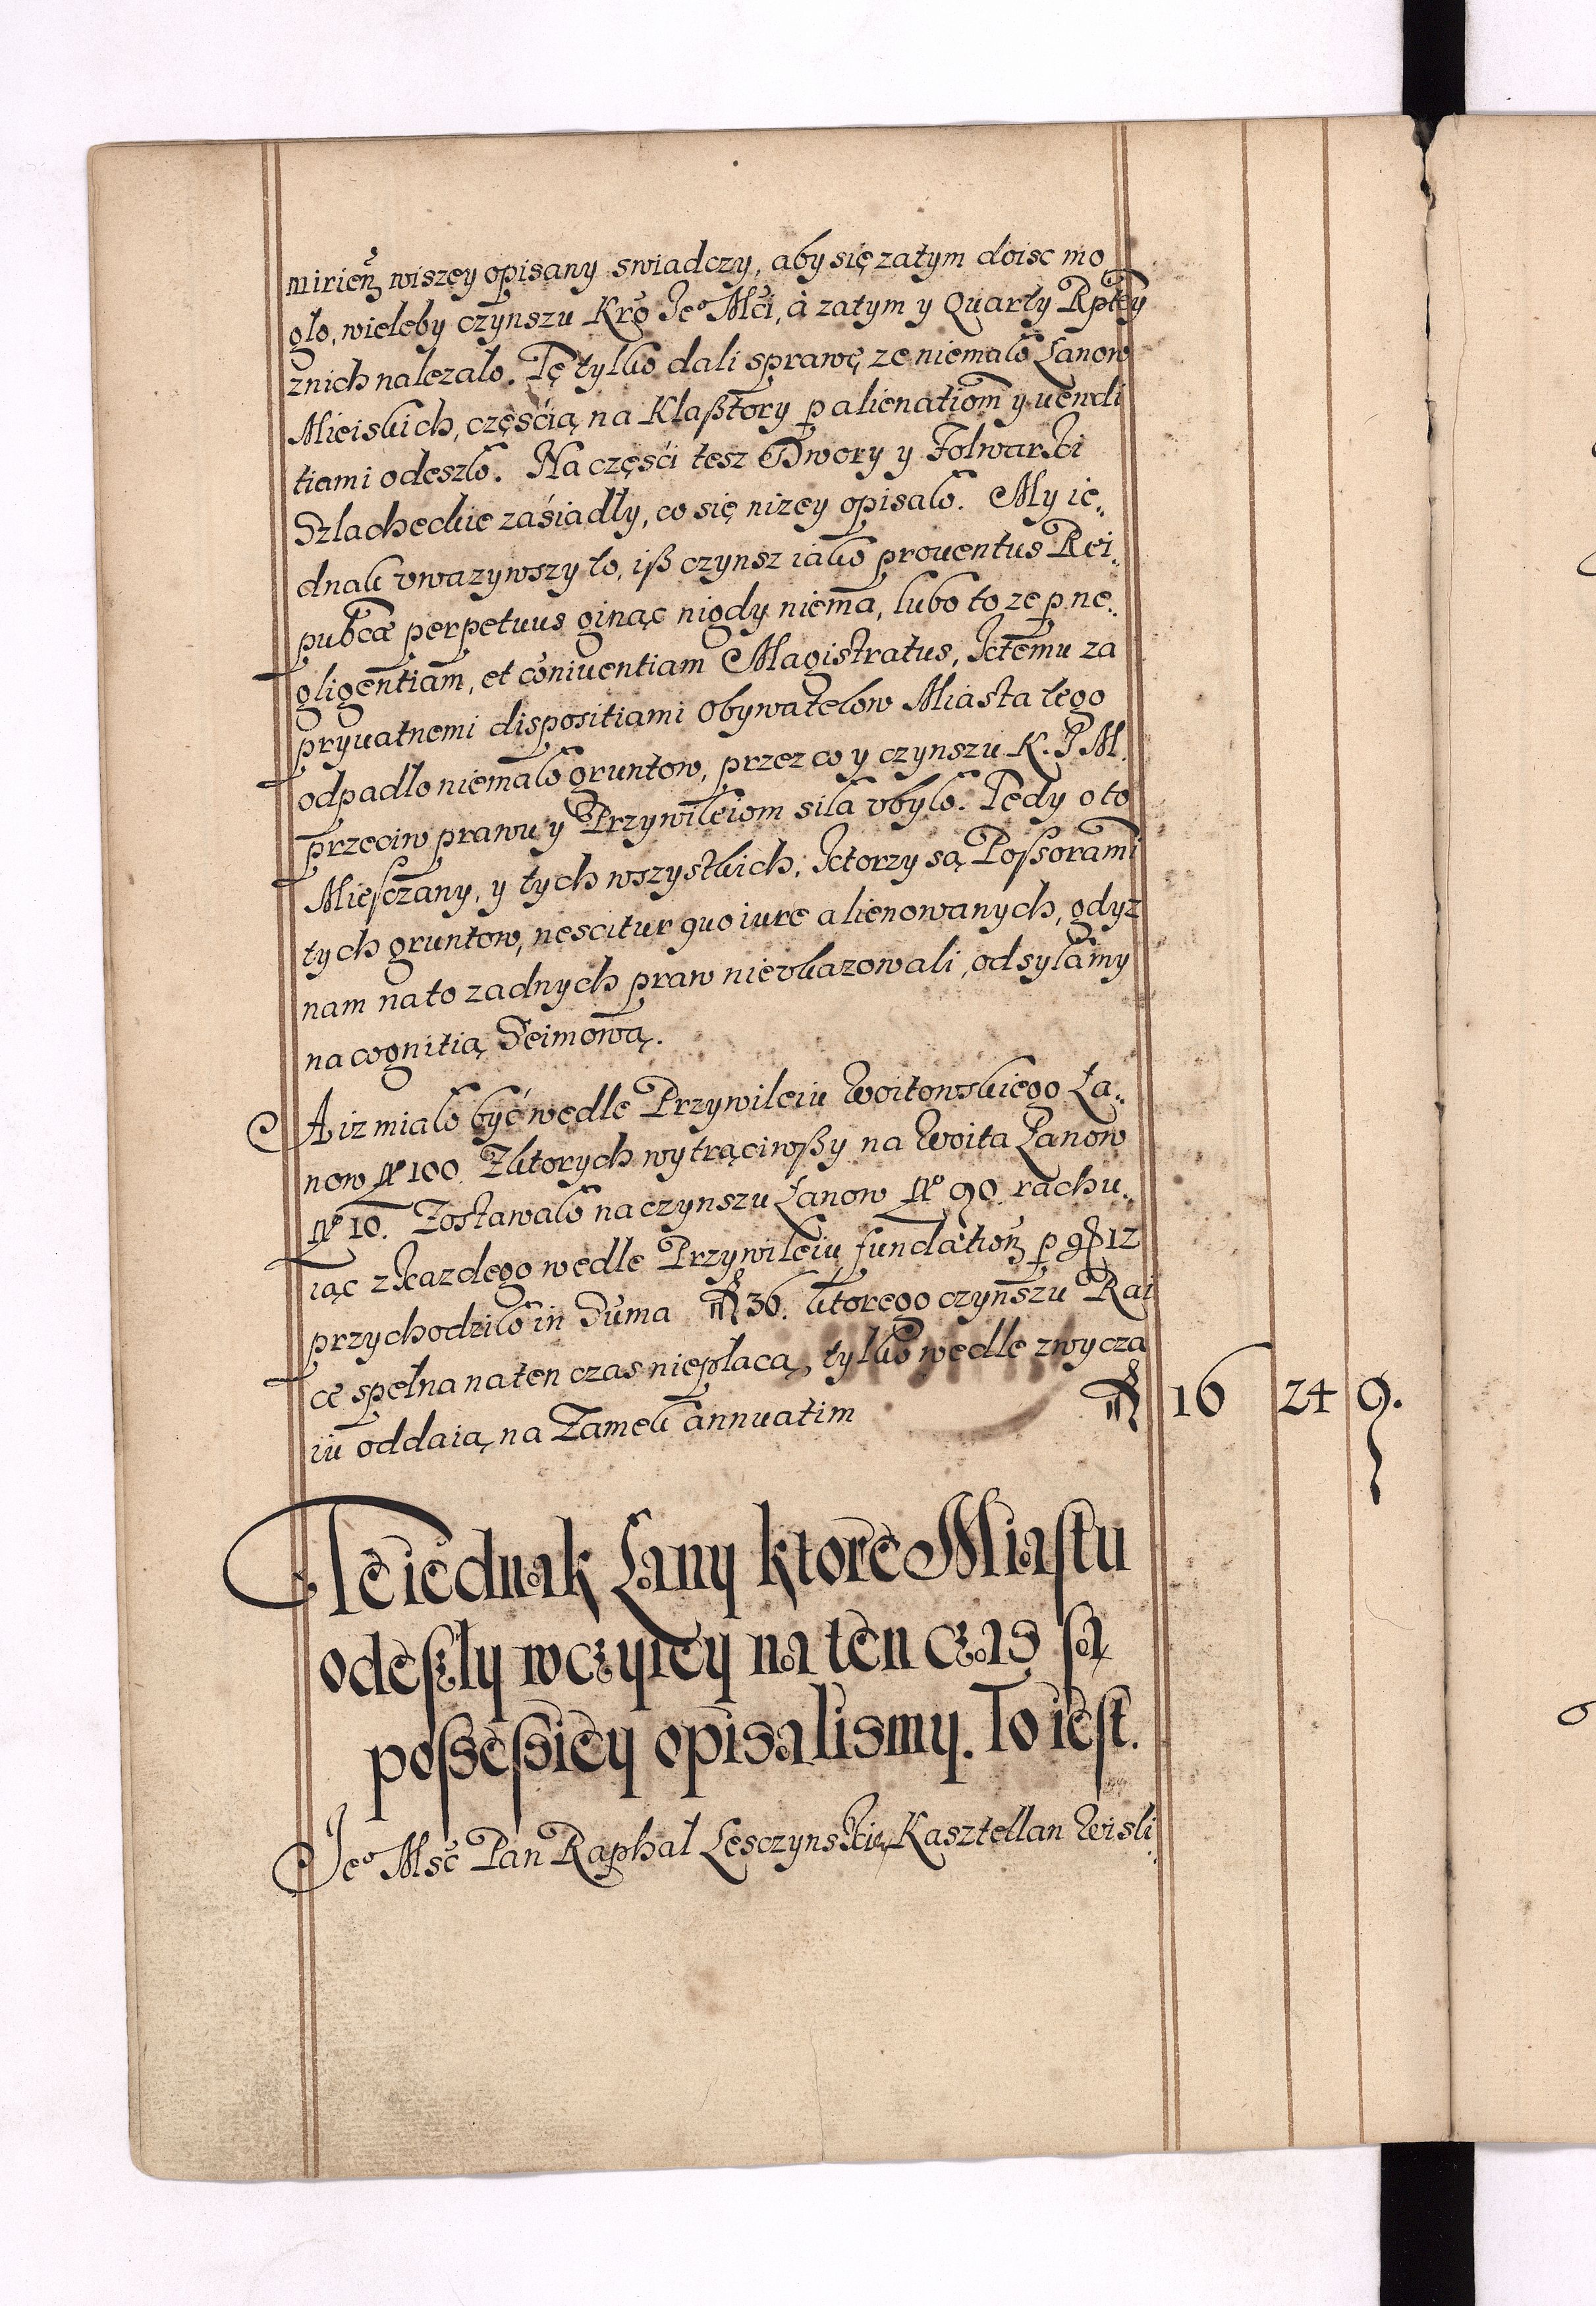 mirien̄ wiszey opisany swiadczy, aby się zatym doisc mo
glo, wieleby czynszu Kro Jeo Mci, à zatym y Quarty Rptey
znich nalezalo. Tę tylko dali sprawę, ze niemalo Łanow
Mieiskich, częścią na Klaßtory p alienatiom̄ y uendi
tiami odeszlo. Na części tesz Dwory y Folwarki
Szlacheckie zasiadły, co się nizey opisalo. My ie„
dnak vwazywszy to, iß czynsz iako prouentus Rei„
pubcæ perpetuus ginąc nigdy niema, lubo to ze p ne„
gligentiam, et coniuentiam Magistratus, ktemu za
pryuatnemi dispositiami Obywatelow Miasta tego
odpadlo niemalo gruntow, przez co y czynszu K. J M.
przeciw prawu y Przywileiom sila vbylo. Tedy o to
Miesczany, y tych wszystkich, ktorzy są Possorami
tych gruntow, nescitur quo iure alienowanych, gdyz
nam na to zadnych praw nievkazowali, odsylamy
na cognitią Seimową.
A iz mialo być wedle Przywileiu Woitowskiego Ła„
now No 100. Zktorych wytrąciwßy na Woita Łanow
No 10. Zostawalo na czynszu Łanow No 90. rachu„
iąc z kazdego wedle Przywileiu fundation̄ p gß 12
przychodzilo in Suma 36. ktorego czynszu Rai
ce spełna na ten czas niepłacą, tylko wedle zwycza
iu oddaią na Zamek annuatim 16 24 9.
Te iednak Łany ktore Miastu
odeszły w czyiey na ten czas są
possessiey opisalismy. To iest.
Jeo Msć Pan Raphal Lesczynski Kasztellan Wisli„